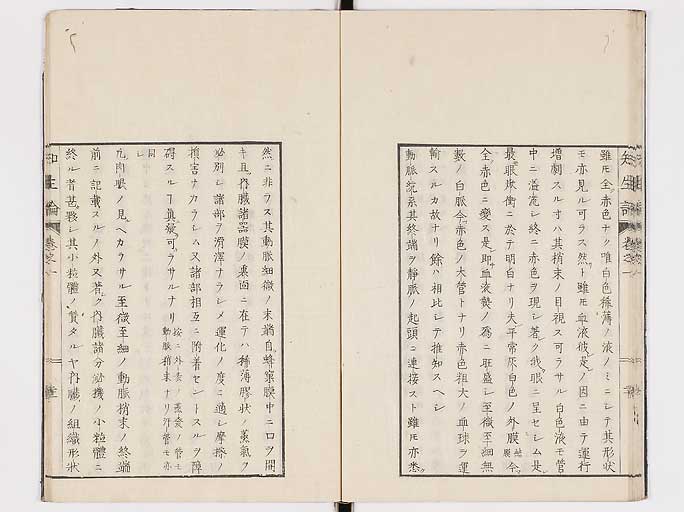 雖モ全ク赤色ナク唯白色稀薄ノ液ノミニ乄其形状
モ亦見ル可ラス然トモ雖モ血液彼是ノ因ニ由テ運行
増劇スル寸ハ其梢末ノ目視ス可ラサル白色液モ管
中ニ溢流シ終ニ赤色ヲ現シ著ク我眼ニ呈セシム是
最眼焮衝ニ於テ明白ナリ夫平常尿白色ノ外膜今
全ク赤色ニ変ス是即血液襲ノ為ニ旺盛シ至微至細無
數ノ白脈今赤色ノ大管トナリ赤色粗大ノ血球ヲ運
輸スルカ故ナリ餘ハ相比シテ推知スヘシ
動脈統系其終端ヲ静脈ノ起頭ニ連接スト雖モ亦悉ク
知生論 巻之一
然ニ非ラス其動脈細微ノ末端自蜂窠膜中ニ口ヲ開
キ且內臓諸器膜ノ裏面ニ在テハ稀薄膠状ノ蒸氣ヲ
泌別シ諸部ヲ滑澤ナラシメ運化ノ度ニ適シ摩擦ノ
損害ナカラシハ又諸部相互ニ附着セントスルヲ障
碍スルヿ真疑可ラサルナリ
按ニ外表ノ蒸發ノ管モ
動脈梢末ナリ汗管モ亦
同シ
凢肉眼ノ見ヘカラサル至微至細ノ動脈梢末ノ終端
前ニ記載スルノ外又著ク內臓諸分泌機ノ小粒體ニ
終ル者甚夥シ其小粒體ノ質タルヤ內臓ノ組織形状
知生論 巻之一